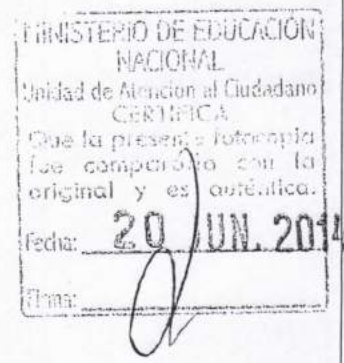 MINISTERIO DE EDUCACIÓN
NACIONAL
Unidad de Atención al Ciudadano
CERTIFICA
Que la presente fotocopia
fue comparada con la
original y es auténtica.
Fecha: 20 JUN. 2014
Firma: